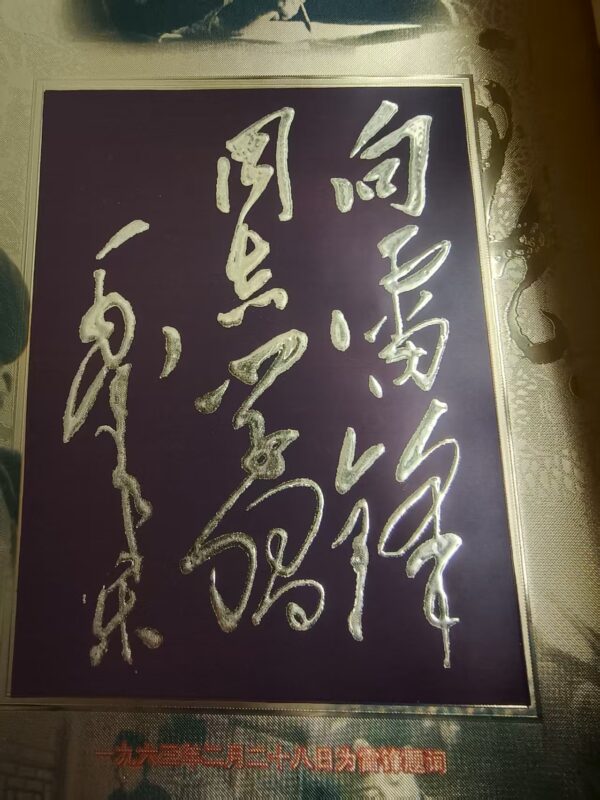 向雷锋
同志学习
毛泽东
一九六三年二月二十八日为雷锋题词